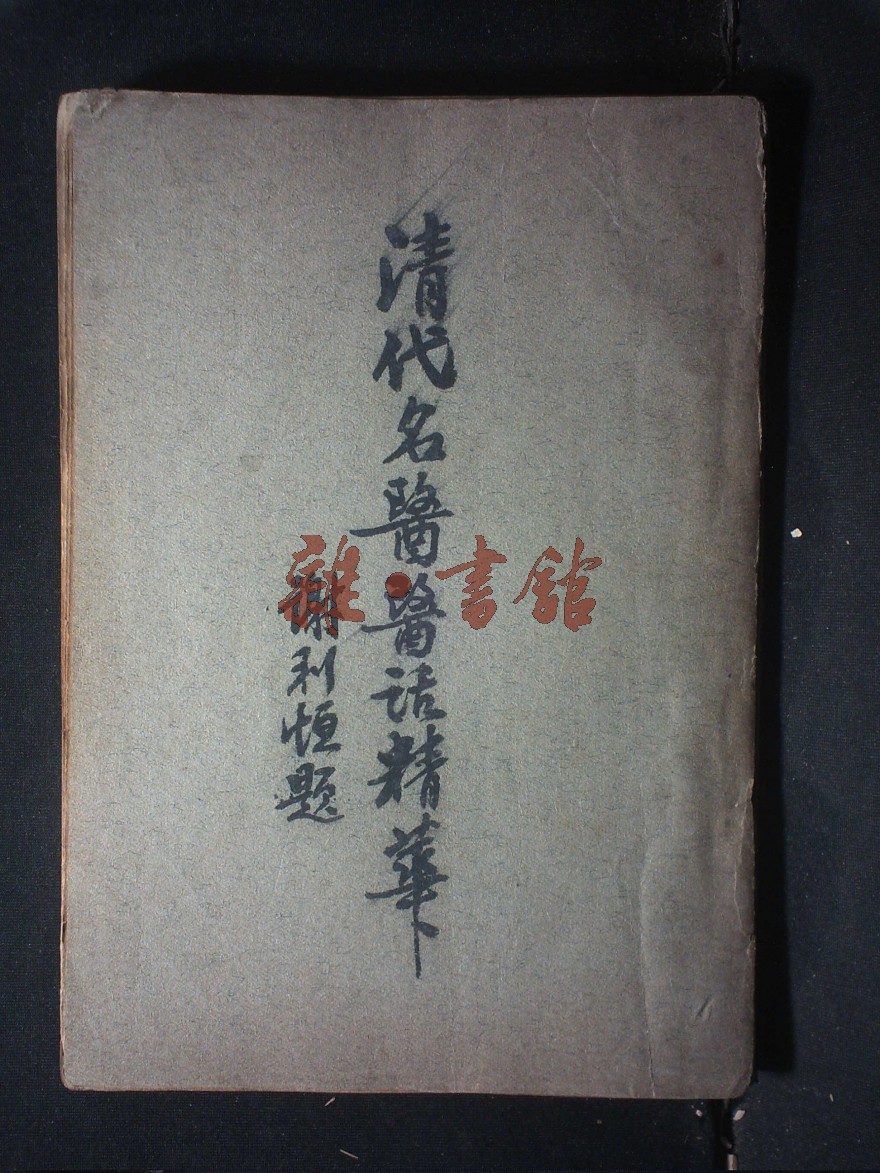 清代名醫醫話精華
謝利恒題
雜·書館